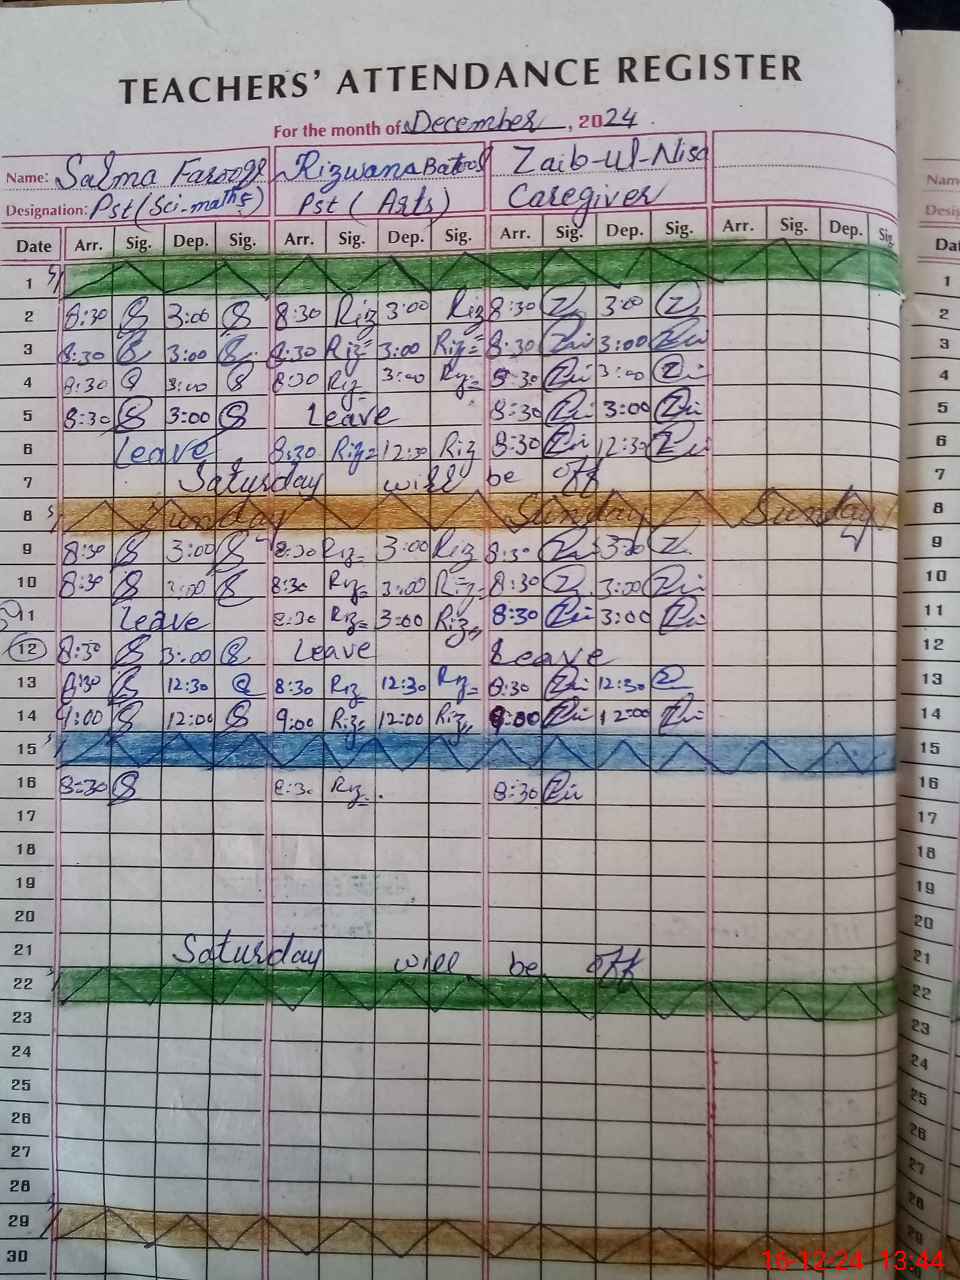 TEACHERS' ATTENDANCE REGISTER
For the month of December, 2024
Name: Salma Farooqe Rizwana Batool Zaib-ul-Nisa
Designation: Pst (Sci-maths) Pst (Arts) Caregiver
Date Arr. Sig. Dep. Sig. Arr. Sig. Dep. Sig. Arr. Sig. Dep. Sig. Arr. Sig. Dep. Sig.
1
2 8:30 3:00 8:30 Riz 3:00 Riz 8:30 3:00
3 8:30 3:00 8:30 Riz 3:00 Riz 8:30 3:00
4 8:30 3:00 8:30 Riz 3:00 Riz 8:30 3:00
5 8:30 3:00 Leave 8:30 3:00
6 Leave 8:30 Riz 12:30 Riz 8:30 12:30
7 Saturday will be off
8 Sunday Sunday Sunday
9 8:30 3:00 8:30 Riz 3:00 Riz 8:30 3:00
10 8:30 3:00 8:30 Riz 3:00 Riz 8:30 3:00
11 Leave 8:30 Riz 3:00 Riz 8:30 3:00
12 8:30 3:00 Leave Leave
13 8:30 12:30 8:30 Riz 12:30 Riz 8:30 12:30
14 9:00 12:00 9:00 Riz 12:00 Riz 9:00 12:00
15
16 8:30 8:30 Riz 8:30
17
18
19
20
21 Saturday will be off
22
23
24
25
26
27
28
29
30
Name
Date
1
2
3
4
5
6
7
8
9
10
11
12
13
14
15
16
17
18
19
20
21
22
23
24
25
26
27
28
29
16-12-24 13:44